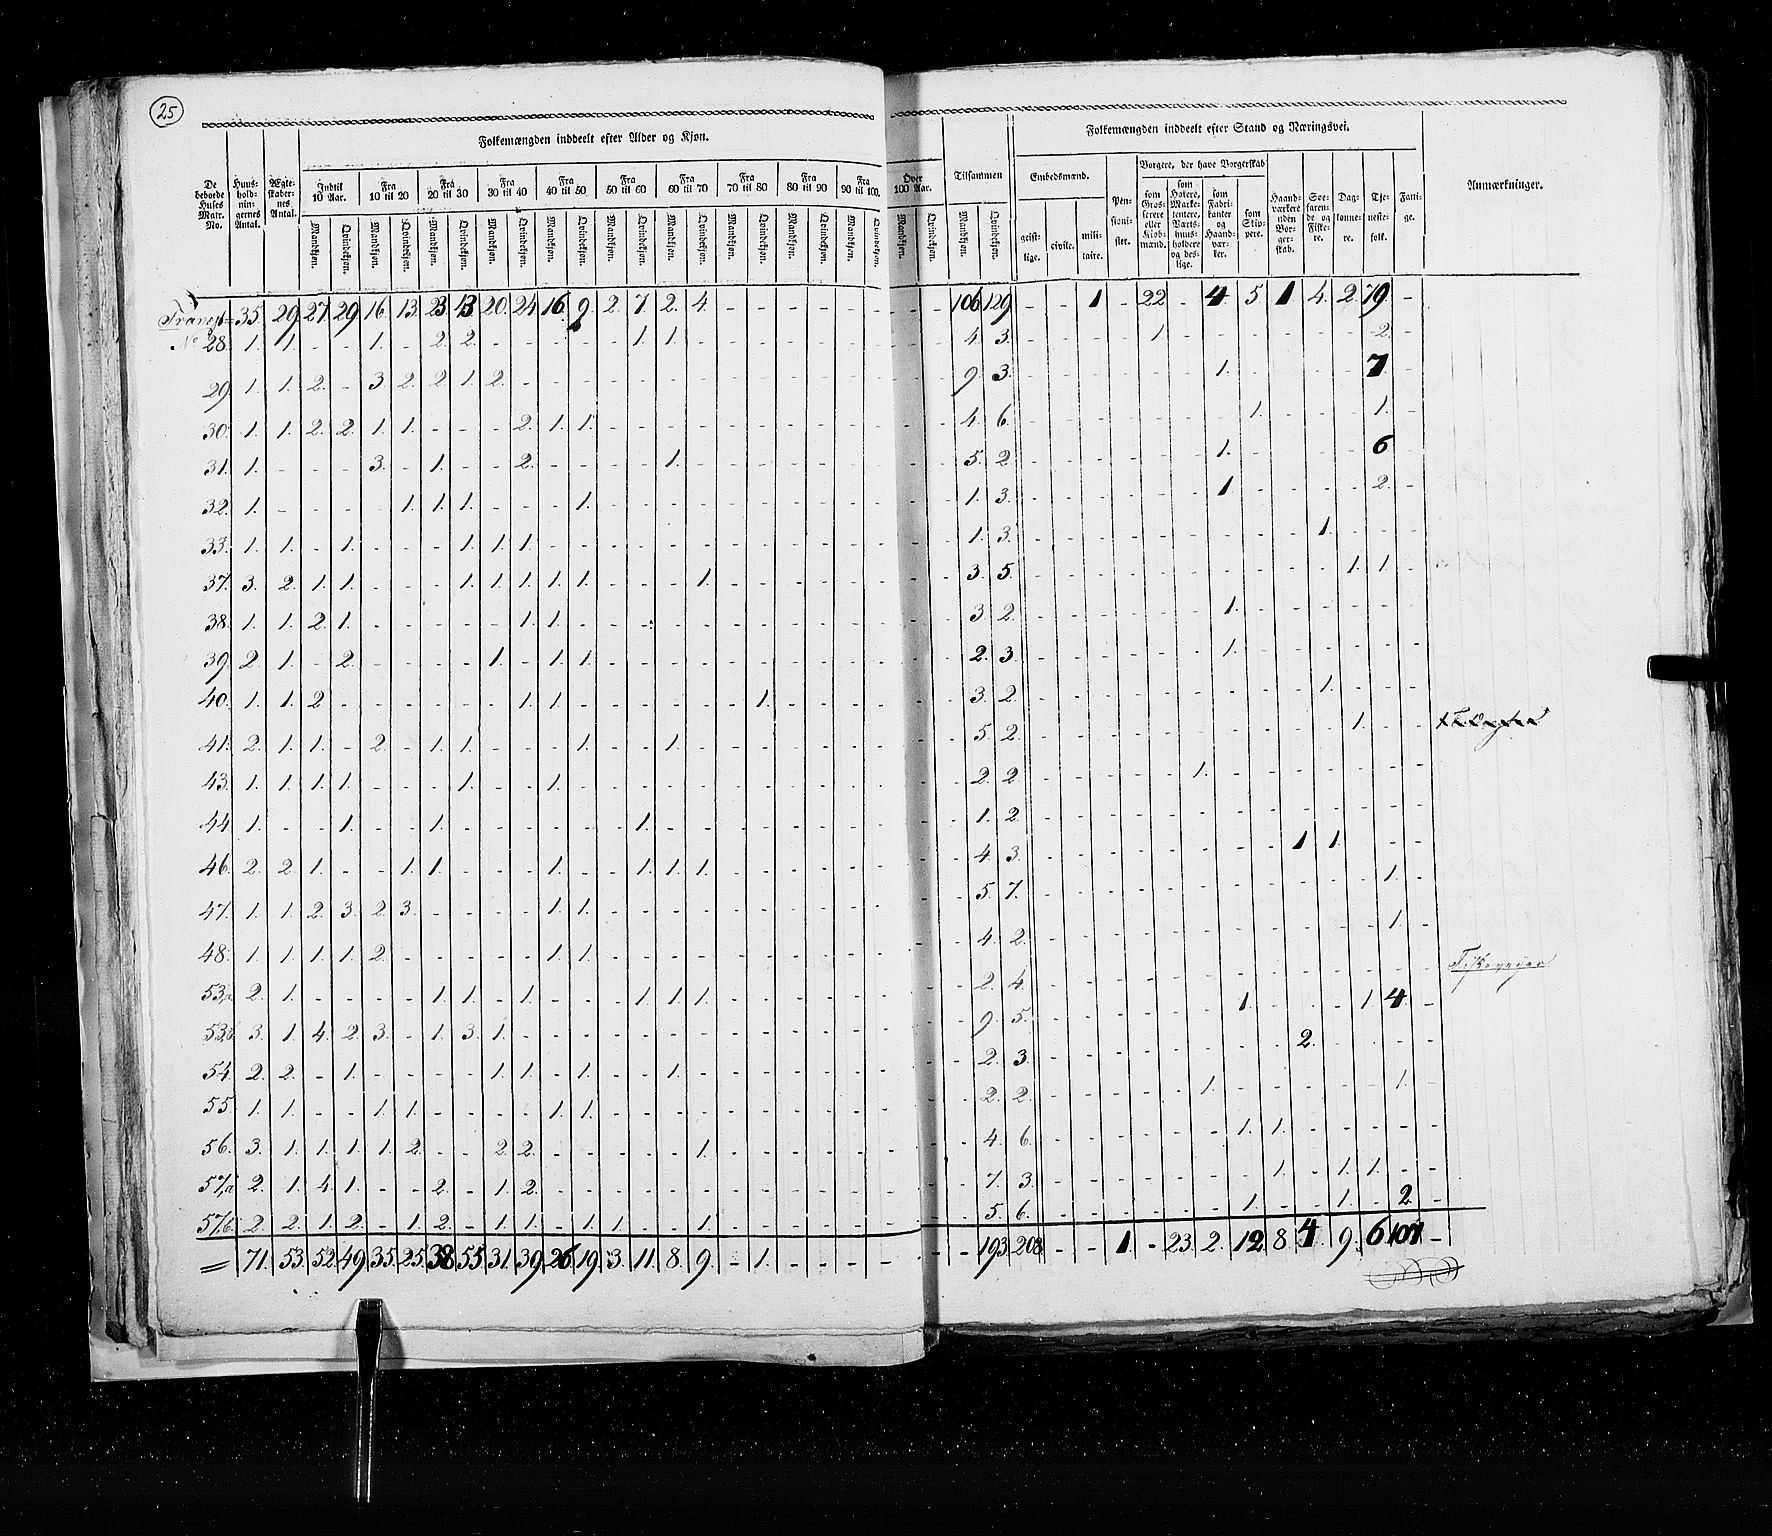 25
Folkemængden inddeelt efter Alder og Kjøn.
Folkemængden inddeelt efter Stand og Næringsvei.
De beboede Huses Matr. No.
Huusholdningernes Antal.
Ægteskabernes Antal.
Indtil 10 Aar.
Fra 10 til 20
Fra 20 til 30
Fra 30 til 40
Fra 40 til 50
Fra 50 til 60
Fra 60 til 70
Fra 70 til 80
Fra 80 til 90
Fra 90 til 100.
Over 100 Aar.
Tilsammen
Embedsmænd.
Pensionister.
Borgere, der have Borgerskab
Haandværkere uden Borgerskab.
Søefarende og Fiskere.
Daglønnere.
Tjenestefolk.
Fattige.
Anmærkninger.
Mandkjøn. Qvindekjøn. Mandkjøn. Qvindekjøn. Mandkjøn. Qvindekjøn. Mandkjøn. Qvindekjøn. Mandkjøn. Qvindekjøn. Mandkjøn. Qvindekjøn. Mandkjøn. Qvindekjøn. Mandkjøn. Qvindekjøn. Mandkjøn. Qvindekjøn. Mandkjøn. Qvindekjøn. Mandkjøn. Qvindekjøn. Mandkjøn. Qvindekjøn.
geistlige. civile. militaire.
som Grosserere eller Kiøbmænd.
som Høkere, Marketentere, Værtshuusholdere og deslige.
som Fabrikanter og Haandværker.
som Skippere.
Transpt 35 29 27 29 16 13 23 13 20 24 16 9 2 7 2 4 - - - - - - - - 106 129 - - 1 - 22 - 4 5 1 4 2 79 -
No 28. 1. 1. - - 1. - 2 2. - - - - - 1 1 - - - - - - - - - 4. 3. - - - - 1 - - - - - - 2. -
29. 1. 1. 2. - 3 2. 2 1. 2. - - - - - - - - - - - - - - - 9 3. - - - - - - 1. - - - - 7. -
30. 1. 1. 2. 2. 1. 1. - - - 2. 1. 1. - - - - - - - - - - - - 4. 6. - - - - - - - 1. - - - 1. -
31. 1. - - - 3. - 1. - - 2. - - - - 1. - - - - - - - - - 5. 2 - - - - - - 1. - - - - 6 -
32. 1. - - - - 1. 1. 1. - - - 1. - - - - - - - - - - - - 1. 3. - - - - - - 1 - - - - 2. -
33. 1. 1. - 1. - - - 1. 1. 1. - - - - - - - - - - - - - - 1. 3. - - - - - - - - - 1. - - -
37. 3. 2. 1. 1. - - - 1. 1. 1. 1. 1. - - - 1. - - - - - - - - 3. 5. - - - - - - - - - - 1. 1. -
38. 1. 1. 2. 1. - - - - - 1. 1. - - - - - - - - - - - - - 3. 2. - - - - - - 1. - - - - - -
39. 2. 1. - 2. - - - - 1. - 1. 1. - - - - - - - - - - - - 2. 3. - - - - - - 1. - - - - - -
40. 1. 1. 2 - - - - - - 1. 1. - - - - - - 1. - - - - - - 3. 2 - - - - - - - - - 1. - - -
41. 2. 1. 1. - 2. - 1. 1. - - - 1. - - 1. - - - - - - - - - 5 2. - - - - - - - - - - 1. - -
43. 1. 1. 1. 1. - - - 1. - - 1. - - - - - - - - - - - - - 2. 2 - - - - - 1. - - - - - - -
44. 1. - - 1. - - 1. - - - - - - 1. - - - - - - - - - - 1. 2. - - - - - - - - - - - - -
46. 2. 2. 1. - - 1. 1. - - - 1. - - 1. 1. 1. - - - - - - - - 4. 3. - - - - - - - - 1 1. - - -
47. 1. 1. 2. 3. 2. 3. - - - - 1. 1. - - - - - - - - - - - - 5. 7. - - - - - - - - - - - 1. -
48. 1. 1. 1. 1. 2. - - - - - 1. 1. - - - - - - - - - - - - 4. 2. - - - - - - - - - - - 1. -
53,a 2. 1. - - - - 1. 1. - 1. - - - 1. 1. 1. - - - - - - - - 2. 4. - - - - - - - - - - - - -
53,b 3. 1. 4. 2. 3. - 1. 3. 1. - - - - - - - - - - - - - - - 9. 5. - - - - - - 1. - - - 1. 4. -
54. 2. 2. - 1. - - - - 1. 1. - 1. - - 1. - - - - - - - - - 2. 3. - - - - - - - - 2. - - - -
55. 1. 1. - - 1. 1. - - - - 1. 1. - - - - - - - - - - - - 2. 2. - - - - - 1. - - - - - 1. -
56. 3. 1. 1. 1. 1. 2. - - 2 2. - - - - - 1. - - - - - - - - 4. 6. - - - - - - 1. 1. - - - - -
57,a 2. 1. 4. 1. - - 2. - 1. 2. - - - - - - - - - - - - - - 7. 3. - - - - - - - 1. - 1. 1. - -
57,b 2. 2. 1. 2. - 1. 2. - 1. 1. - 1. 1. - - 1. - - - - - - - - 5. 6. - - - - - - 1. - - 1. - 2. -
= 71. 53. 52. 49. 35. 25. 38 55 31. 39. 26. 19. 3. 11. 8. 9. - 1. - - - - - - 193. 208. - - 1. - 23. 2. 12. 8. 4. 9. 6 107 -